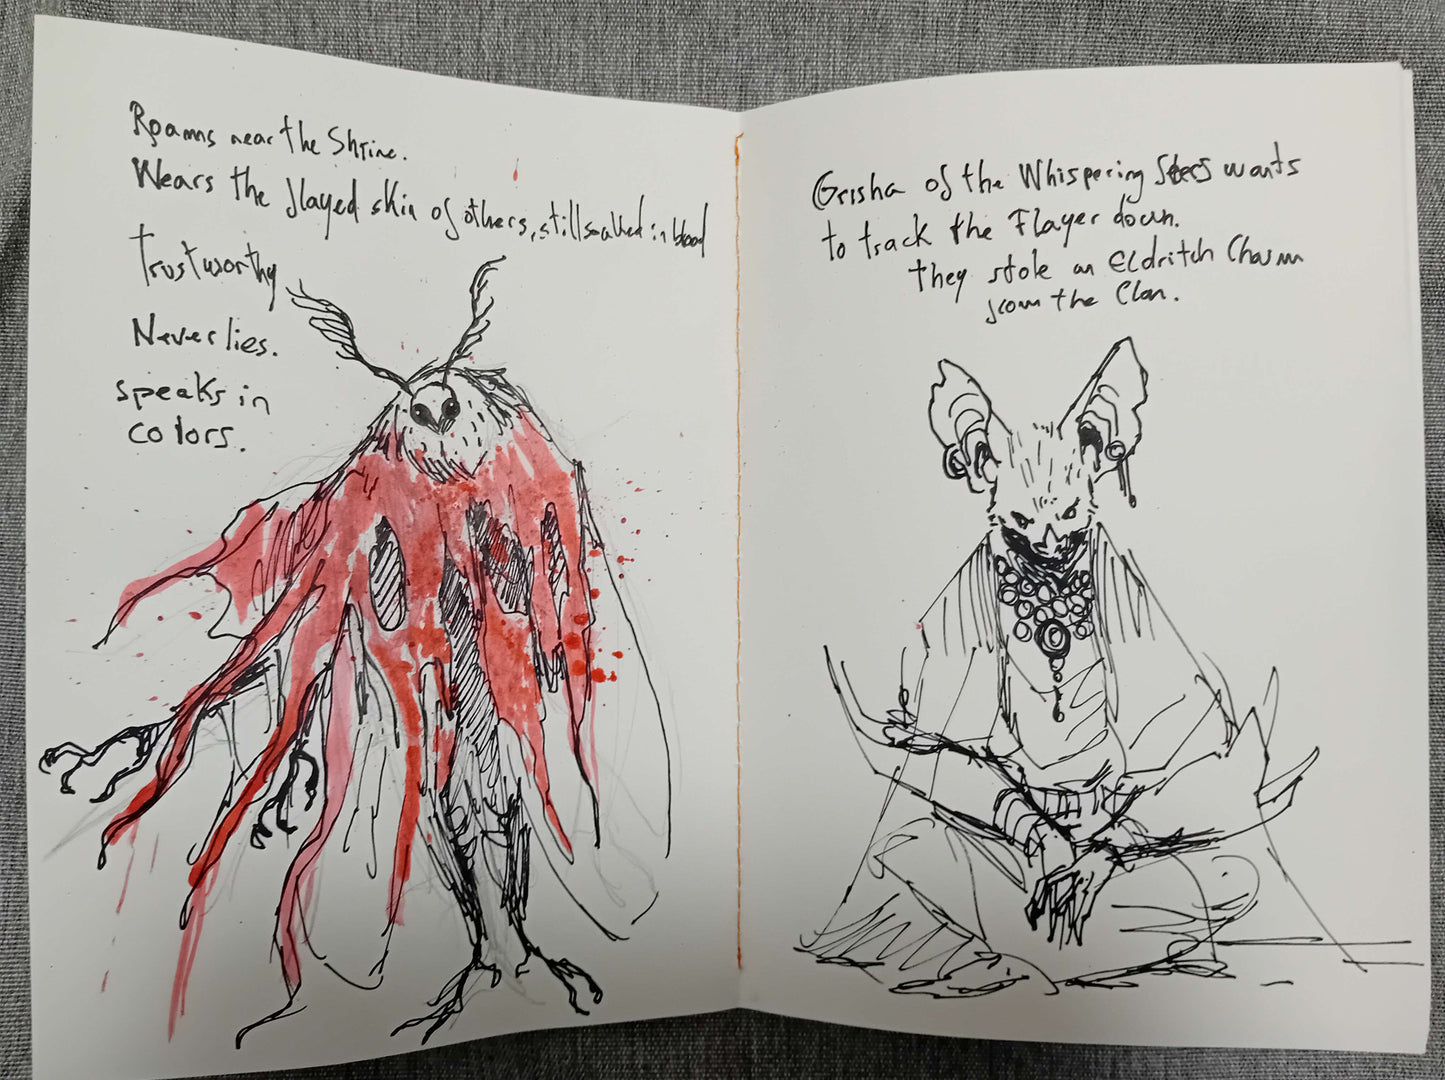 Roams near the Shrine.
Wears the flayed skin of others, still soaked in blood
Trustworthy
Never lies.
speaks in
colors.
Grisha of the Whispering Seers wants
to track the Flayer down.
they stole an Eldritch Charm
from the Clan.